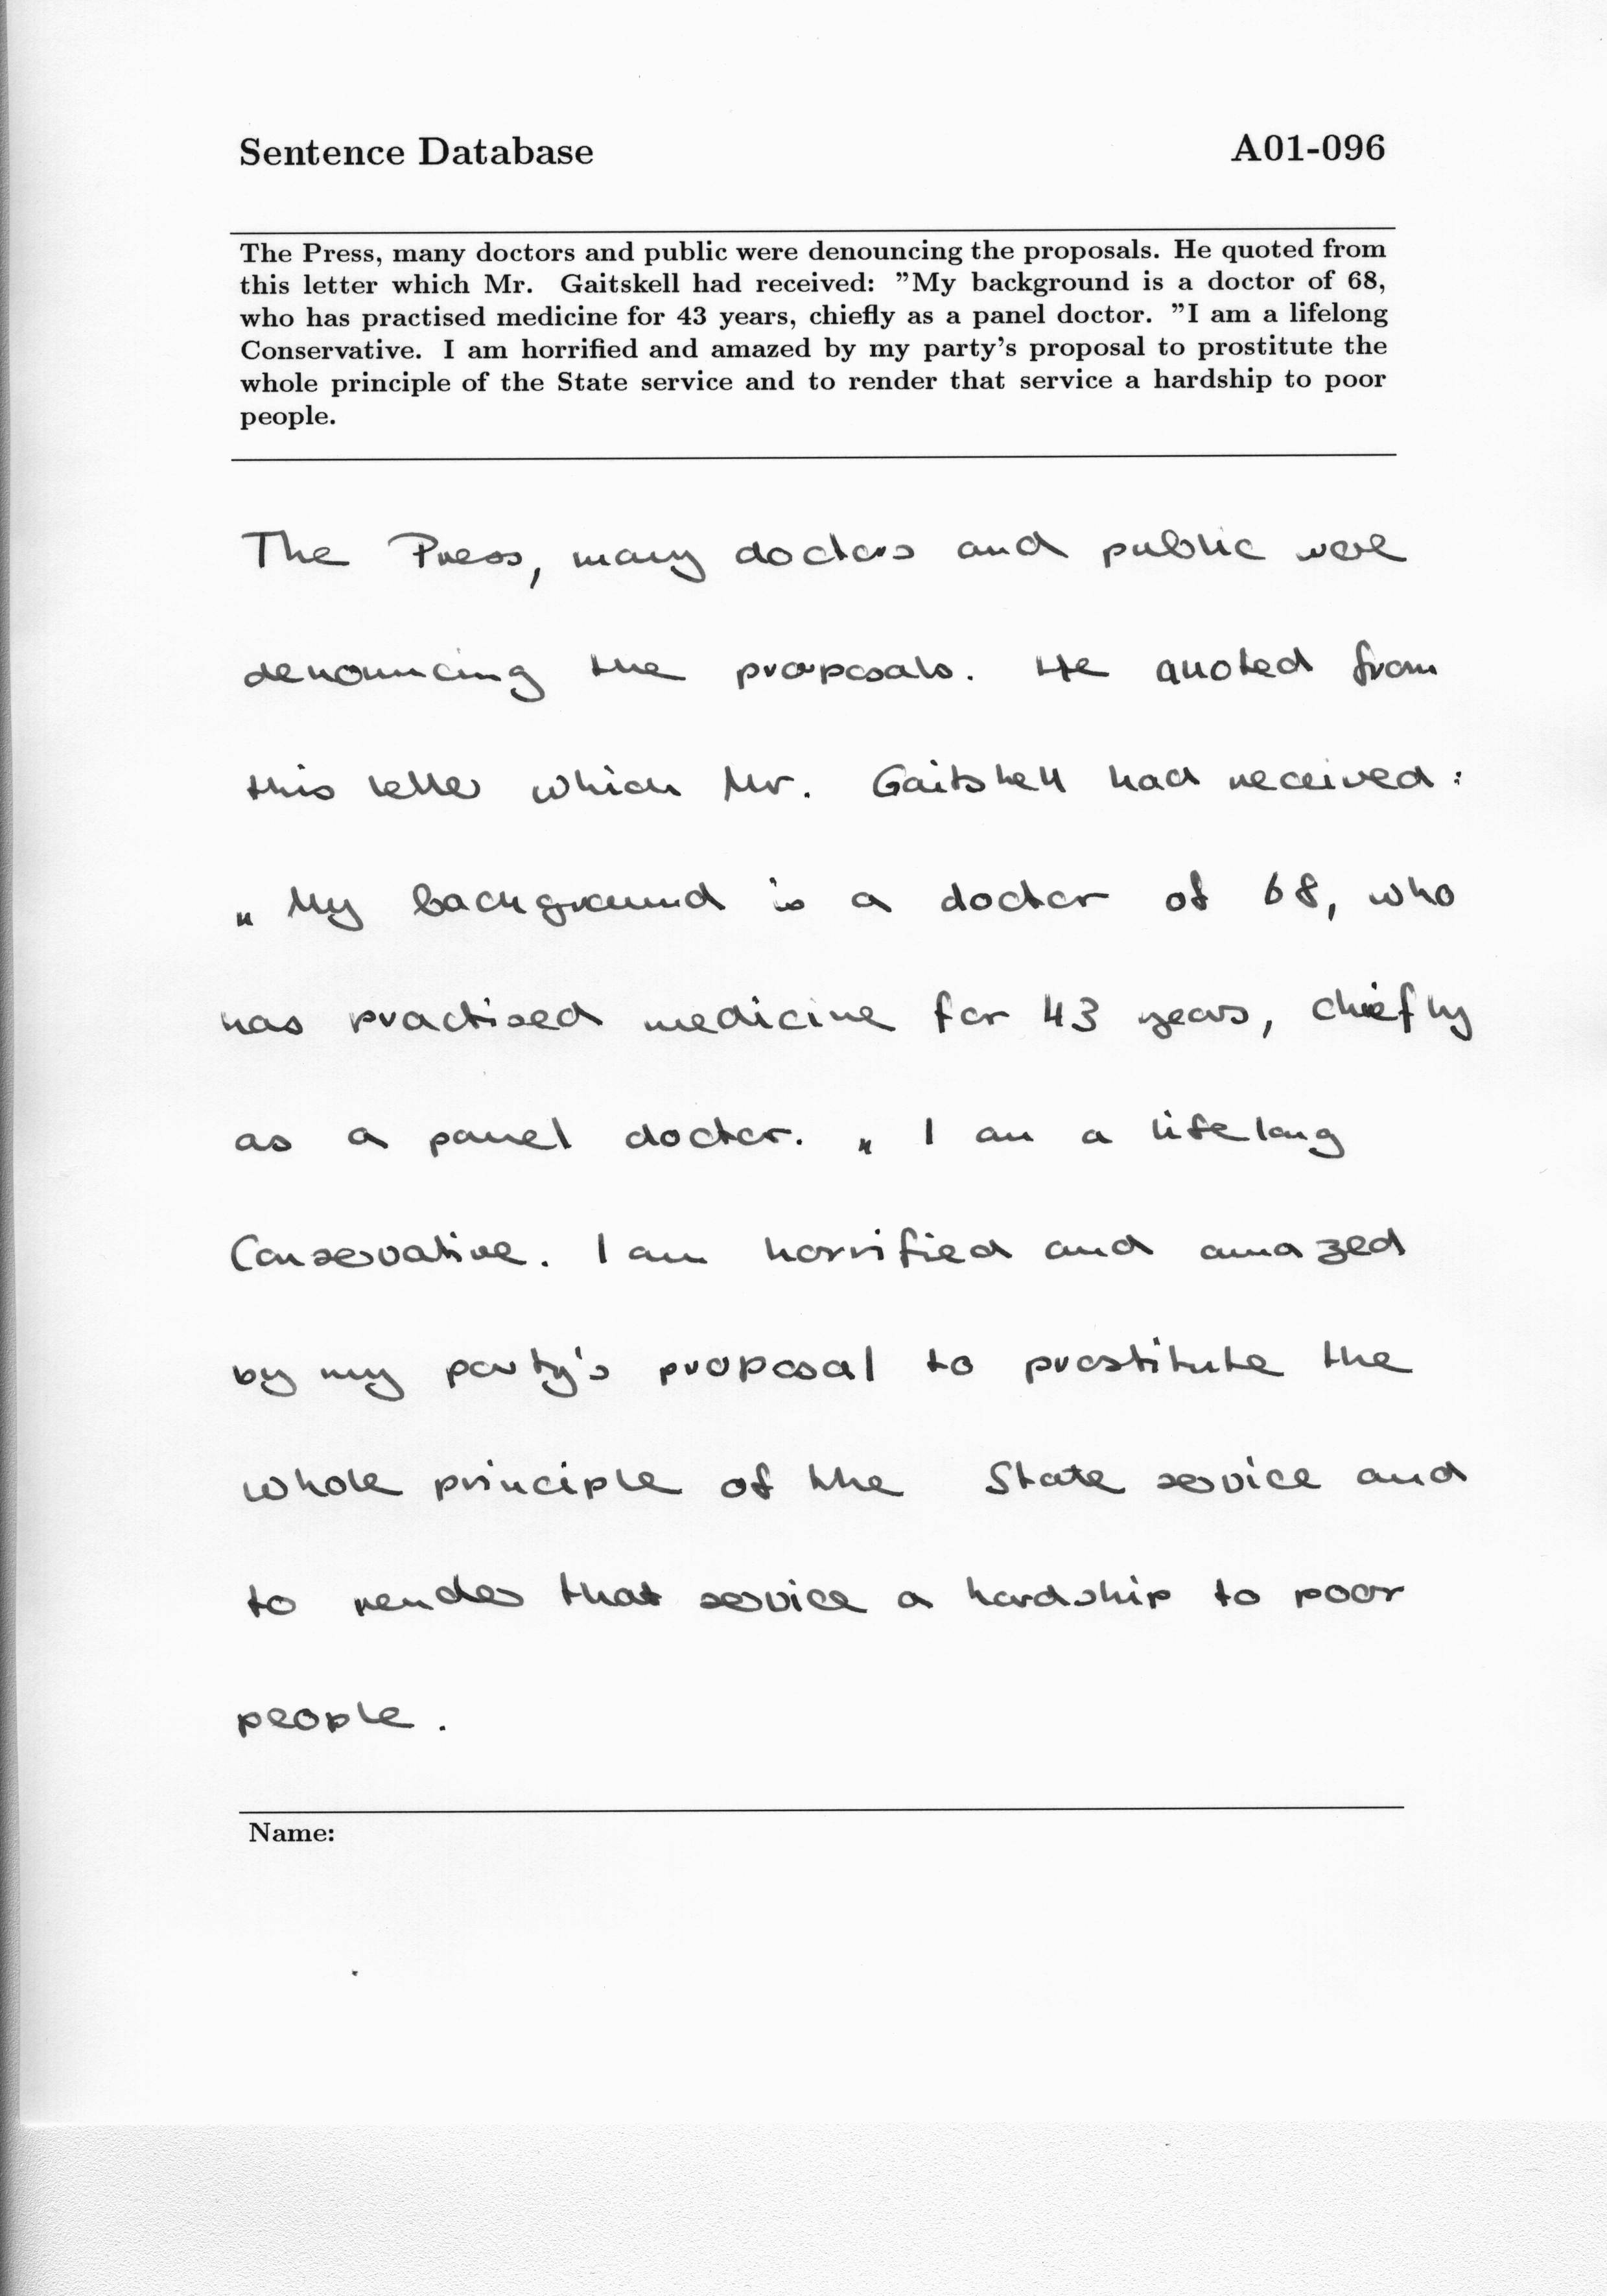 Sentence Database A01-096
The Press, many doctors and public were denouncing the proposals. He quoted from
this letter which Mr. Gaitskell had received: ”My background is a doctor of 68,
who has practised medicine for 43 years, chiefly as a panel doctor. ”I am a lifelong
Conservative. I am horrified and amazed by my party’s proposal to prostitute the
whole principle of the State service and to render that service a hardship to poor
people.
The Press, many doctors and public were
denouncing the proposals. He quoted from
this letter which Mr. Gaitskell had received:
„My background is a doctor of 68, who
has practised medicine for 43 years, chiefly
as a panel doctor. „I am a lifelong
Conservative. I am horrified and amazed
by my party's proposal to prostitute the
whole principle of the State service and
to render that service a hardship to poor
people.
Name: